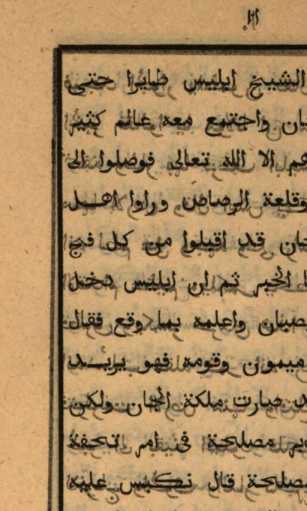 ١٢١
الشيخ ابليس طايرا حتى
واجتمع معه عالم كثير
الا الله تعالى فوصلوا الى
وقلعة الرصاص وراوا اهل
قد اقبلوا من كل فج
الخبر ثم ان ابليس دخل
واعلمه بما وقع فقال
ميمون وقومه فهو يريد
صارت ملكة الجان ولكن
مصلحة في امر تحفة
مصلحة قال نكبس عليه